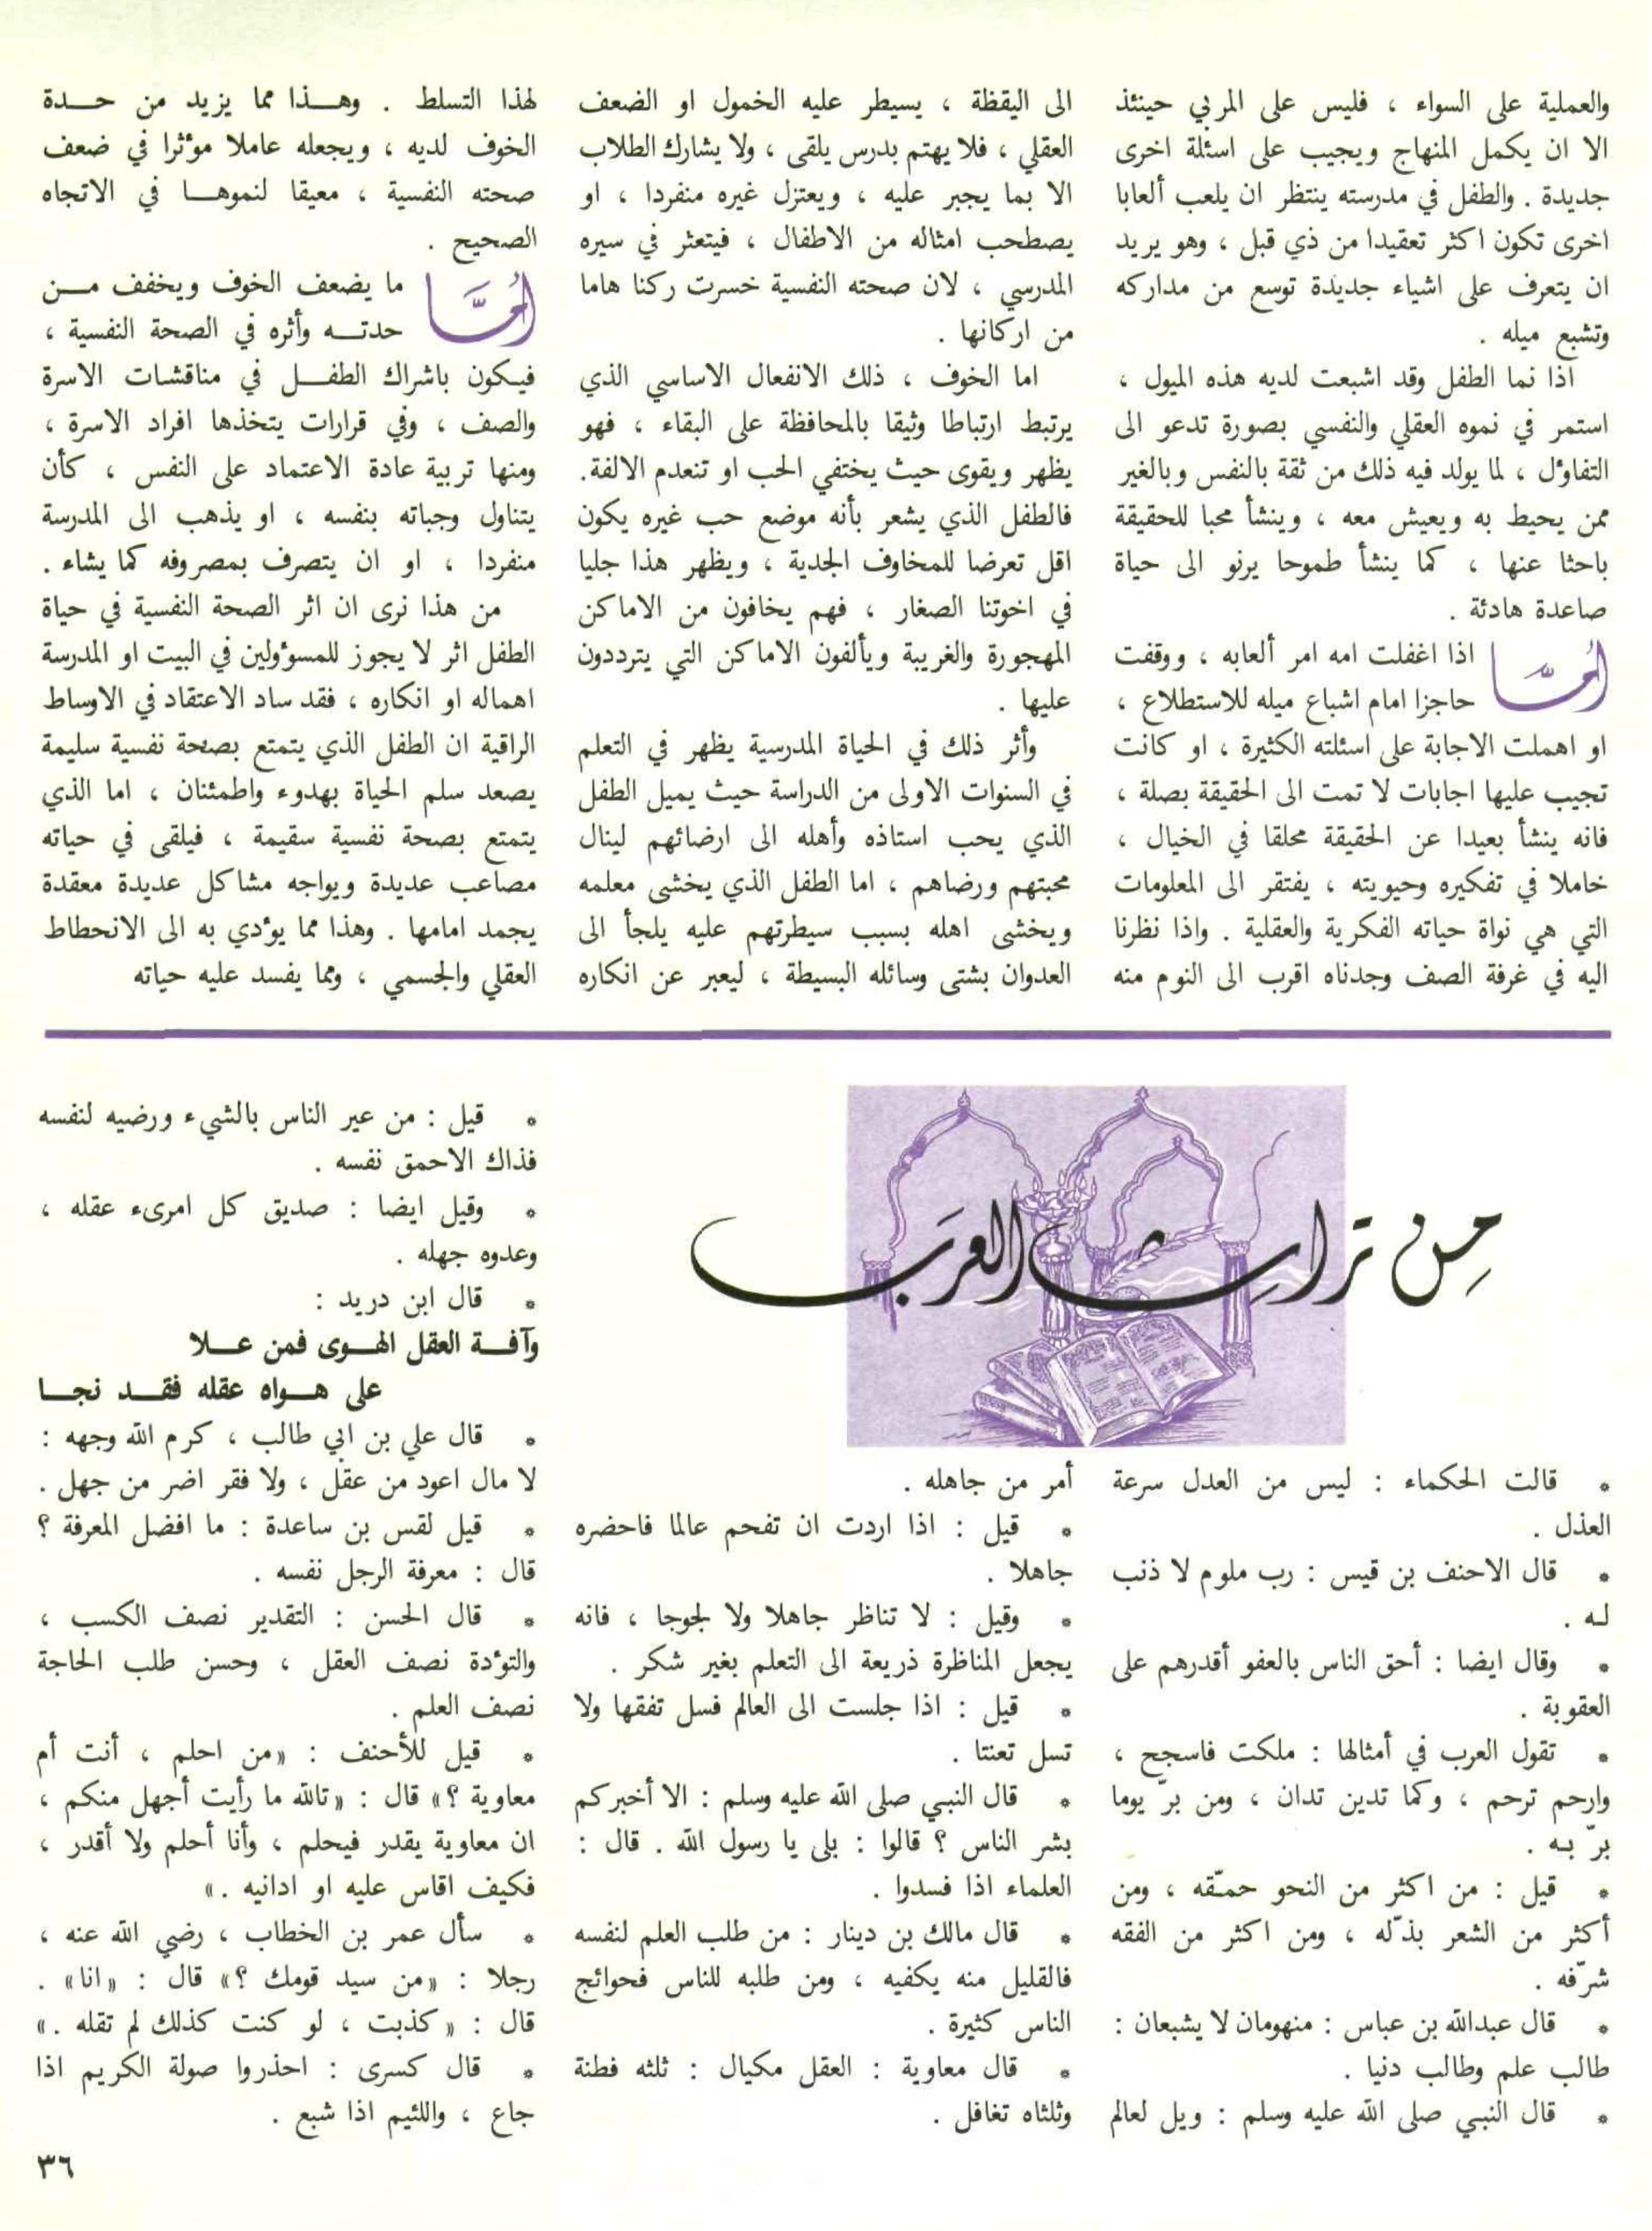 والعملية على السواء ، فليس على المربي حينئذ
الا ان يكمل المنهاج ويجيب على اسئلة اخرى
جديدة . والطفل في مدرسته ينتظر ان يلعب ألعابا
اخرى تكون اكثر تعقيدا من ذي قبل ، وهو يريد
ان يتعرف على اشياء جديدة توسع من مداركه
وتشبع ميله .
اذا نما الطفل وقد اشبعت لديه هذه الميول ،
استمر في نموه العقلي والنفسي بصورة تدعو الى
التفاؤل ، لما يولد فيه ذلك من ثقة بالنفس وبالغير
ممن يحيط به ويعيش معه ، وينشأ محبا للحقيقة
باحثا عنها ، كما ينشأ طموحا يرنو الى حياة
صاعدة هادئة .
أمّا اذا اغفلت امه امر ألعابه ، ووقفت
حاجزا امام اشباع ميله للاستطلاع ،
او اهملت الاجابة على اسئلته الكثيرة ، او كانت
تجيب عليها اجابات لا تمت الى الحقيقة بصلة ،
فانه ينشأ بعيدا عن الحقيقة محلقا في الخيال ،
خاملا في تفكيره وحيويته ، يفتقر الى المعلومات
التي هي نواة حياته الفكرية والعقلية . واذا نظرنا
اليه في غرفة الصف وجدناه اقرب الى النوم منه
الى اليقظة ، يسيطر عليه الخمول او الضعف
العقلي ، فلا يهتم بدرس يلقى ، ولا يشارك الطلاب
الا بما يجبر عليه ، ويعتزل غيره منفردا ، او
يصطحب امثاله من الاطفال ، فيتعثر في سيره
المدرسي ، لان صحته النفسية خسرت ركنا هاما
من اركانها .
اما الخوف ، ذلك الانفعال الاساسي الذي
يرتبط ارتباطا وثيقا بالمحافظة على البقاء ، فهو
يظهر ويقوى حيث يختفي الحب او تنعدم الالفة.
فالطفل الذي يشعر بأنه موضع حب غيره يكون
اقل تعرضا للمخاوف الجدية ، ويظهر هذا جليا
في اخوتنا الصغار ، فهم يخافون من الاماكن
المهجورة والغريبة ويألفون الاماكن التي يترددون
عليها .
وأثر ذلك في الحياة المدرسية يظهر في التعلم
في السنوات الاولى من الدراسة حيث يميل الطفل
الذي يحب استاذه وأهله الى ارضائهم لينال
محبتهم ورضاهم ، اما الطفل الذي يخشى معلمه
ويخشى اهله بسبب سيطرتهم عليه يلجأ الى
العدوان بشتى وسائله البسيطة ، ليعبر عن انكاره
لهذا التسلط . وهـــذا مما يزيد من حـــدة
الخوف لديه ، ويجعله عاملا مؤثرا في ضعف
صحته النفسية ، معيقا لنموهــا في الاتجاه
الصحيح .
أمّا ما يضعف الخوف ويخفف مــن
حدتــه وأثره في الصحة النفسية ،
فيكون باشراك الطفــل في مناقشات الاسرة
والصف ، وفي قرارات يتخذها افراد الاسرة ،
ومنها تربية عادة الاعتماد على النفس ، كأن
يتناول وجباته بنفسه ، او يذهب الى المدرسة
منفردا ، او ان يتصرف بمصروفه كما يشاء .
من هذا نرى ان اثر الصحة النفسية في حياة
الطفل اثر لا يجوز للمسؤولين في البيت او المدرسة
اهماله او انكاره ، فقد ساد الاعتقاد في الاوساط
الراقية ان الطفل الذي يتمتع بصحة نفسية سليمة
يصعد سلم الحياة بهدوء واطمئنان ، اما الذي
يتمتع بصحة نفسية سقيمة ، فيلقى في حياته
مصاعب عديدة ويواجه مشاكل عديدة معقدة
يجمد امامها . وهذا مما يؤدي به الى الانحطاط
العقلي والجسمي ، ومما يفسد عليه حياته
مِن تراثِ العرَب
* قالت الحكماء : ليس من العدل سرعة
العذل .
* قال الاحنف بن قيس : رب ملوم لا ذنب
لـه .
* وقال ايضا : أحق الناس بالعفو أقدرهم على
العقوبة .
* تقول العرب في أمثالها : ملكت فاسجح ،
وارحم ترحم ، وكما تدين تدان ، ومن برّ يوما
برّ بـه .
* قيل : من اكثر من النحو حمّقه ، ومن
أكثر من الشعر بذّله ، ومن اكثر من الفقه
شرّفه .
* قال عبدالله بن عباس : منهومان لا يشبعان :
طالب علم وطالب دنيا .
* قال النبي صلى الله عليه وسلم : ويل لعالم
أمر من جاهله .
* قيل : اذا اردت ان تفحم عالما فاحضره
جاهلا .
* وقيل : لا تناظر جاهلا ولا لجوجا ، فانه
يجعل المناظرة ذريعة الى التعلم بغير شكر .
* قيل : اذا جلست الى العالم فسل تفقها ولا
تسل تعنتا .
* قال النبي صلى الله عليه وسلم : الا أخبركم
بشر الناس ؟ قالوا : بلى يا رسول الله . قال :
العلماء اذا فسدوا .
* قال مالك بن دينار : من طلب العلم لنفسه
فالقليل منه يكفيه ، ومن طلبه للناس فحوائج
الناس كثيرة .
* قال معاوية : العقل مكيال : ثلثه فطنة
وثلثاه تغافل .
* قيل : من عير الناس بالشيء ورضيه لنفسه
فذاك الاحمق نفسه .
* وقيل ايضا : صديق كل امرىء عقله ،
وعدوه جهله .
* قال ابن دريد :
وآفـــة العقل الهــوى فمن عــلا
على هـــواه عقله فقــد نجــا
* قال علي بن ابي طالب ، كرم الله وجهه :
لا مال اعود من عقل ، ولا فقر اضر من جهل .
* قيل لقس بن ساعدة : ما افضل المعرفة ؟
قال : معرفة الرجل نفسه .
* قال الحسن : التقدير نصف الكسب ،
والتؤدة نصف العقل ، وحسن طلب الحاجة
نصف العلم .
* قيل للأحنف : «من احلم ، أنت أم
معاوية ؟» قال : «تالله ما رأيت أجهل منكم ،
ان معاوية يقدر فيحلم ، وأنا أحلم ولا أقدر ،
فكيف اقاس عليه او ادانيه .»
* سأل عمر بن الخطاب ، رضي الله عنه ،
رجلا : «من سيد قومك ؟» قال : «انا» .
قال : «كذبت ، لو كنت كذلك لم تقله .»
* قال كسرى : احذروا صولة الكريم اذا
جاع ، واللئيم اذا شبع .
٣٦